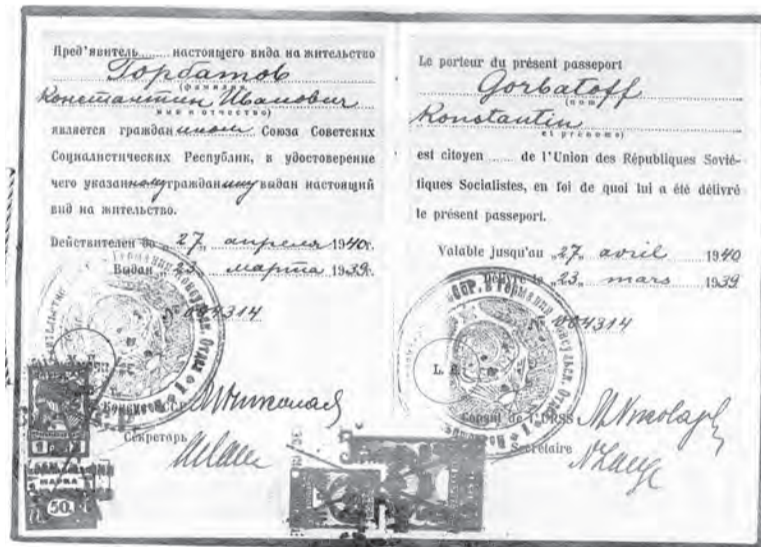 Пред'явитель ........ настоящего вида на жительство
Горбатов
(фамилия)
Константин Иванович
имя и отчество)
является гражданином Союза Советских
Социалистических Республик, в удостоверение
чего указанному гражданину выдан настоящий
вид на жительство.
Действителен до „27„ апреля 1940г.
Выдан „23„ марта 1939г.
№ 004314
М. П.
Консул СССР
Секретарь
1 р.
МАРКА
50
Le porteur du présent passeport
Gorbatoff
(nom)
Konstantin
et prénoms)
est citoyen ...... de l'Union des Républiques Sovié-
tiques Socialistes, en foi de quoi lui a été délivré
le présent passeport.
Valable jusqu'au „27„ avril 1940
Délivré le „23„ mars 1939
№ 004314
СССР. в Германии Консульск. Отдел
L. S.
Consul de l'URSS
Secrétaire